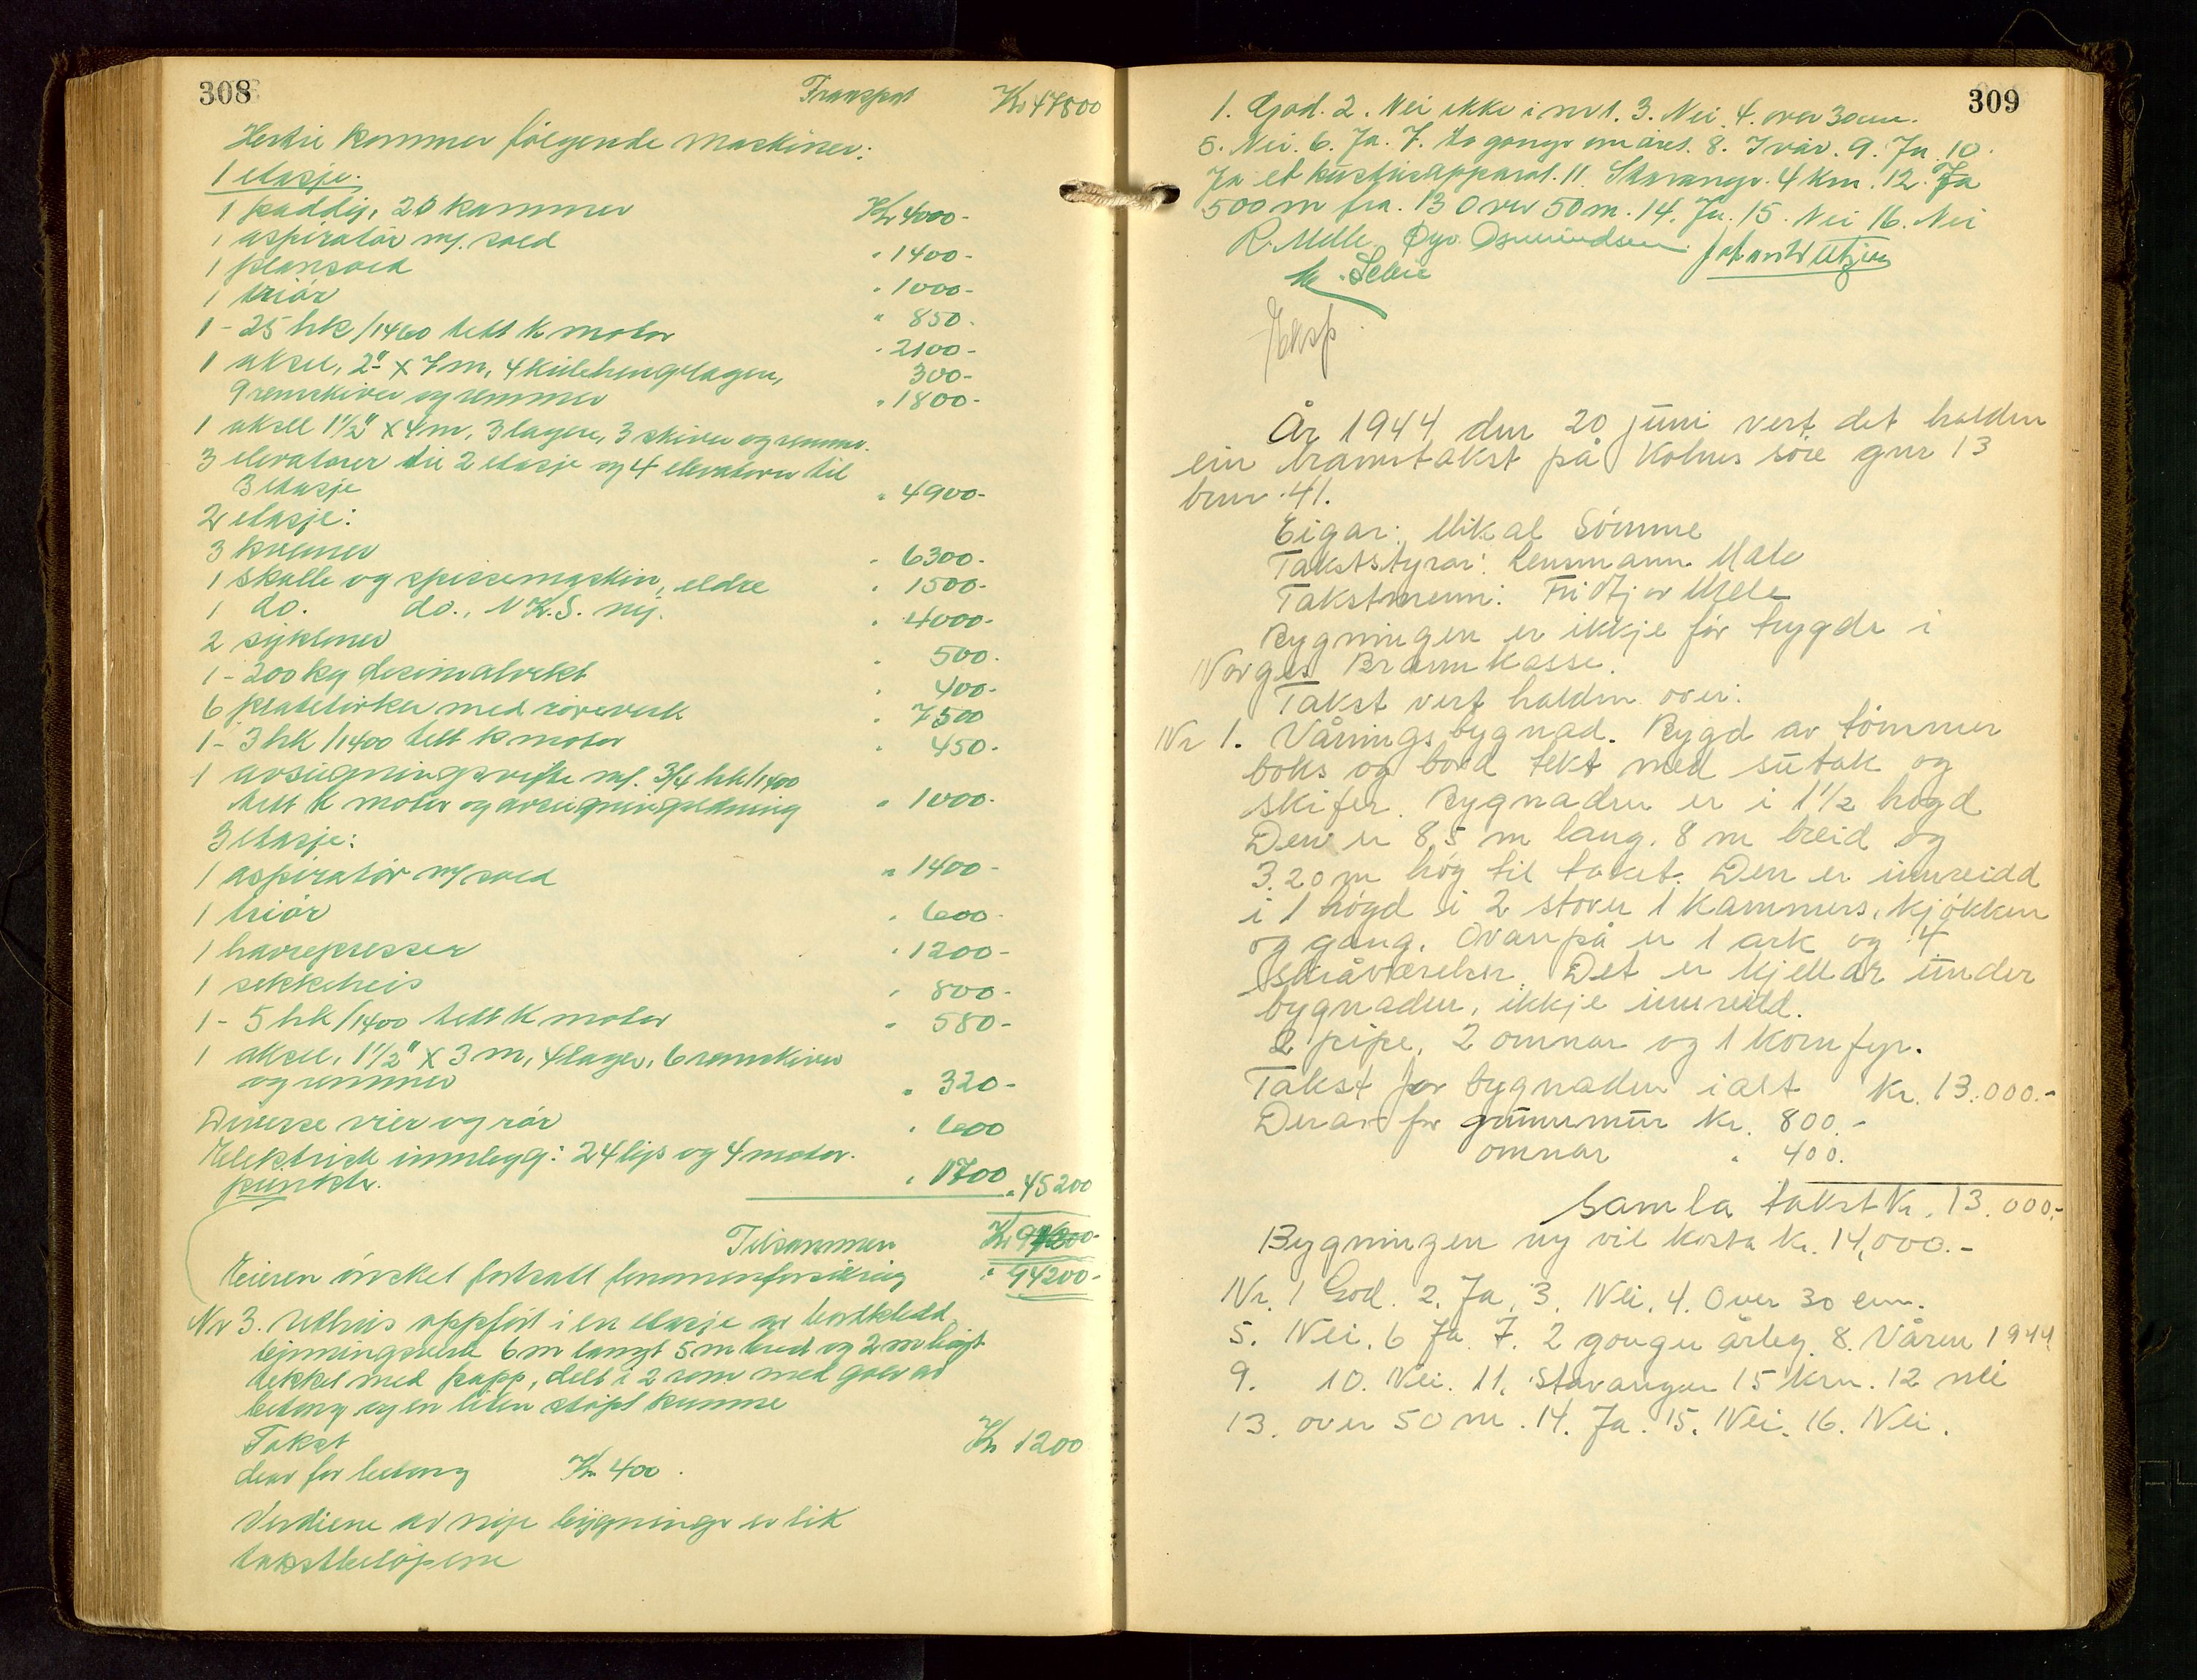 308
Transport Kr 47800
Hertil kommer følgende maskiner:
1 etasje.
1 paddij, 20 kammer Kr 4000-
1 aspiratör m/ sold " 1400-
1 plansold " 1000-
1 triör " 850-
1 - 25 hk/1460 tett k motor " 2100-
1 aksel, 2" x 7 m, 4 kulehengelagere, 300-
9 remskiver og remmer " 1800-
1 aksel 1½" x 4 m, 3 lagere, 3 skiver og remmer.
3 elevatorer til 2 etasje og 4 elevatorer til
3 etasje " 4900-
2 etasje:
3 kverner " 6300-
1 skalle og spissemaskin, eldre " 1500-
1 do. do., N.K.S. nij. " 4000-
2 sykloner " 500-
1 - 200 kg desimalvekt " 400-
6 platetörker med rörverk " 7500
1 - 3 hk/1400 tett k motor " 450-
1 avsugningsvifte m/. 3/4 hk/1400
tett k motor og avsugningsledning " 1000-
3 etasje:
1 aspiratör m/ sold " 1400-
1 triör " 600-
1 havrepresser " 1200-
1 sekkeheis " 800-
1 - 5 hk/1400 tett k motor " 580-
1 aksel, 1½" x 3 m, 4 lager, 6 remskiver
og remmer " 320-
Diverse rier og rör " 600
Elektrisk innlegg: 24 lys og 4 motor.
punkter. " 1700 " 45200
Tilsammen Kr
Eieren ønsket fortsatt brannforsikring " 94200-
Nr 3. Uthus oppfört i en etasje av bordkledd
binningsverk 6 m langt 5 m bred og 2 m högt
tekket med papp, delt i 2 rom med golv av
betong og en liten støpt kumme
Takst Kr 1200
derav for betong Kr 400.
Verdiene av nye bygninger er lik
takstbelöpene
309
1. God. 2. Nei ikke i nr 1. 3. Nei. 4. over 30 cm.
5. Nei. 6. Ja. 7. to ganger om året. 8. I vår. 9. Ja. 10.
Ja et apparat. 11. Stavanger. 4 km. 12. Ja
500 m fra. 13 Over 50 m. 14. Ja. 15. Nei 16. Nei
R. Melle. Øyv. Osmundsen.
Eksp.
År 1944 den 20 juni vert det halden
ein branntakst på Kolnes söre gnr 13
bnr. 41.
Eigar: Mikal Sömme
Takststyrar: Lensmann Mele
Takstmenn: Fridtjov Mele
Bygningen er ikkje för trygda i
Norges Brannkasse.
Takst vert halden over:
Nr 1. Våningsbygnad. Bygd av tömmer
boks og bord tekt med sutak og
skifer. Bygnaden er i 1½ högd
Den er 8,5 m lang. 8 m breid og
3.20 m høg til taket. Den er innreidd
i 1 högd i 2 stover 1 kammers, kjökken
og gang. Ovanpå er 1 ark og 4
skråværelser. Det er kjellar under
bygnaden, ikkje innreidd.
2 pipe, 2 omnar og 1 komfyr.
Takst for bygnaden ialt Kr. 13.000.-
Derav for grunnmur Kr. 800.-
omnar " 400.
Samla takst Kr. 13.000.-
Bygningen ny vil kosta kr. 14,000.-
Nr. 1 God. 2. Ja. 3. Nei. 4. Over 30 cm.
5. Nei. 6 Ja. 7. 2 gonger årleg. 8. Våren 1944
9. 10. Nei. 11. Stavanger 15 km. 12 nei
13. over 50 m. 14. Ja. 15. Nei. 16. Nei.